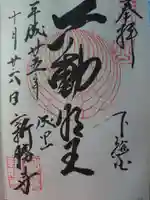 奉拝
下総国
不動明王
成田山
新勝寺
平成廿五年
十月廿六日